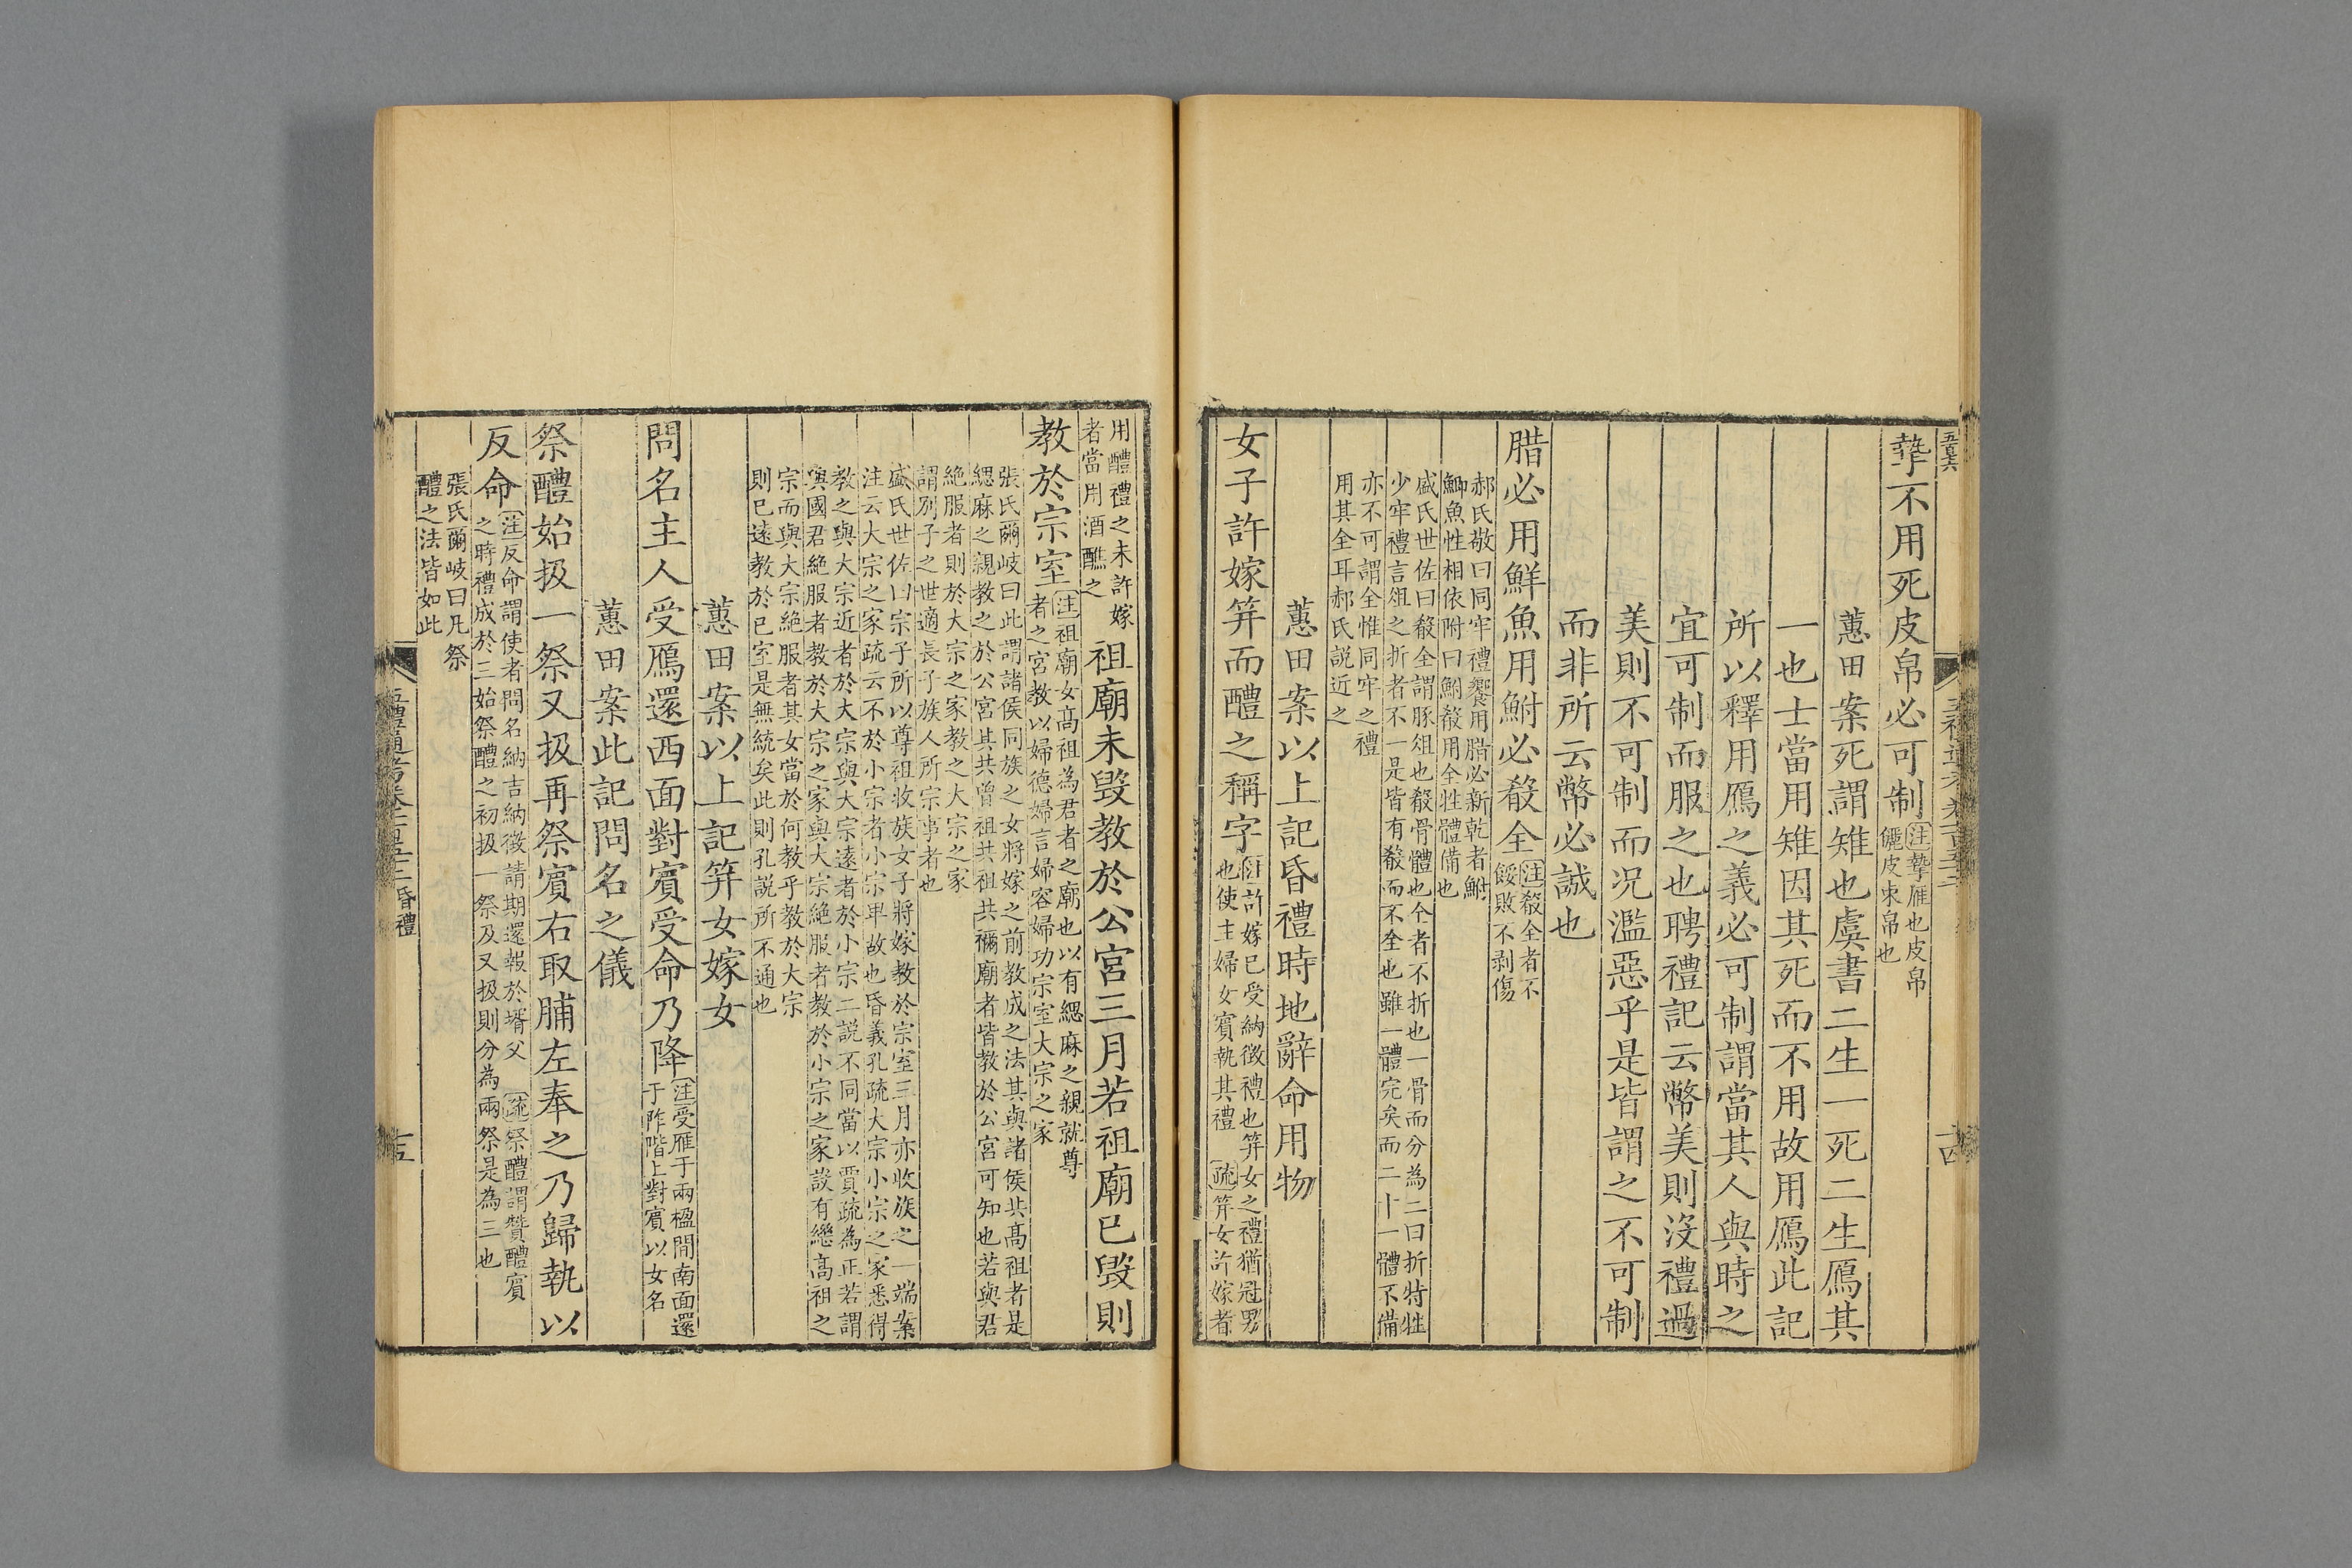 摯不用死皮帛必可制注摯雁也皮帛
儷皮束帛也
蕙田案死謂雉也虞書二生一死二生鴈其
一也士當用雉因其死而不用故用鴈此記
所以釋用鴈之義必可制謂當其人與時之
宜可制而服之也聘禮記云幣美則沒禮過
美則不可制而况濫惡乎是皆謂之不可制
而非所云幣必誠也
腊必用鮮魚用鮒必殽全注殽全者不
餒敗不剥傷
郝氏敬曰同牢禮饗用腊必新乾者鮒
鯽魚性相依附曰鮒殽用全牲體備也
盛氏世佐曰殽全謂豚俎也殽骨體也全者不折也一骨而分為二曰折特牲
少牢禮言俎之折者不一是皆有殽而不全也雖一體完矣而二十一體不備
亦不可謂全惟同牢之禮
用其全耳郝氏説近之
蕙田案以上記昏禮時地辭命用物
女子許嫁筓而醴之稱字注許嫁已受納徵禮也筓女之禮猶冠男
也使主婦女賓執其禮 疏筓女許嫁者
用醴禮之未許嫁
者當用酒醮之
祖廟未毀教於公宮三月若祖廟已毀則
教於宗室注祖廟女高祖為君者之廟也以有緦麻之親就尊
者之宮教以婦德婦言婦容婦功宗室大宗之家
張氏爾岐曰此謂諸侯同族之女將嫁之前教成之法其與諸侯共高祖者是
緦麻之親教之於公宮其共曾祖共祖共禰廟者皆教於公宮可知也若與君
絶服者則於大宗之家教之大宗之家
謂別子之世適長子族人所宗事者也
盛氏世佐曰宗子所以尊祖收族女子將嫁教於宗室三月亦收族之一端案
注云大宗之家疏云不於小宗者小宗卑故也昏義孔疏大宗小宗之家悉得
教之與大宗近者於大宗與大宗遠者於小宗二説不同當以賈疏為正若謂
與國君絶服者教於大宗之家與大宗絶服者教於小宗之家設有繼高祖之
宗而與大宗絶服者其女當於何教乎教於大宗
則已遠教於已室是無統矣此則孔説所不通也
蕙田案以上記筓女嫁女
問名主人受鴈還西面對賓受命乃降注受雁于兩楹間南面還
于阼階上對賓以女名
蕙田案此記問名之儀
祭醴始扱一祭又扱再祭賓右取脯左奉之乃歸執以
反命注反命謂使者問名納吉納徵請期還報於壻父 疏祭醴謂贊醴賓
之時禮成於三始祭醴之初扱一祭及又扱則分為兩祭是為三也
張氏爾岐曰凡祭
醴之法皆如此
五禮通考卷一百五十二 昏禮